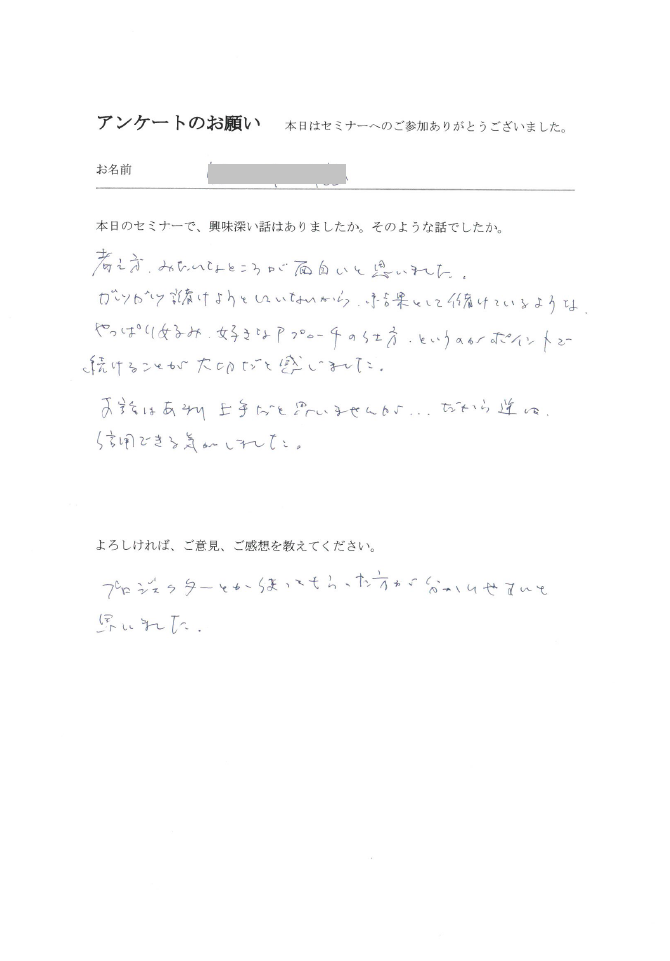 アンケートのお願い　本日はセミナーへのご参加ありがとうございました。
お名前
本日のセミナーで、興味深い話はありましたか。そのような話でしたか。
考え方、みたいなところが面白いと思いました。
ガツガツ儲けようとしていないから、結果として儲けているような、
やっぱり好み、好きなアプローチの仕方、というのがポイントで
続けることが大切だと感じました。
お話はあまり上手だと思いませんが... だから逆に、
信用できる気がしました。
よろしければ、ご意見、ご感想を教えてください。
プロジェクターとか使ってもらった方が分かりやすいと
思いました。